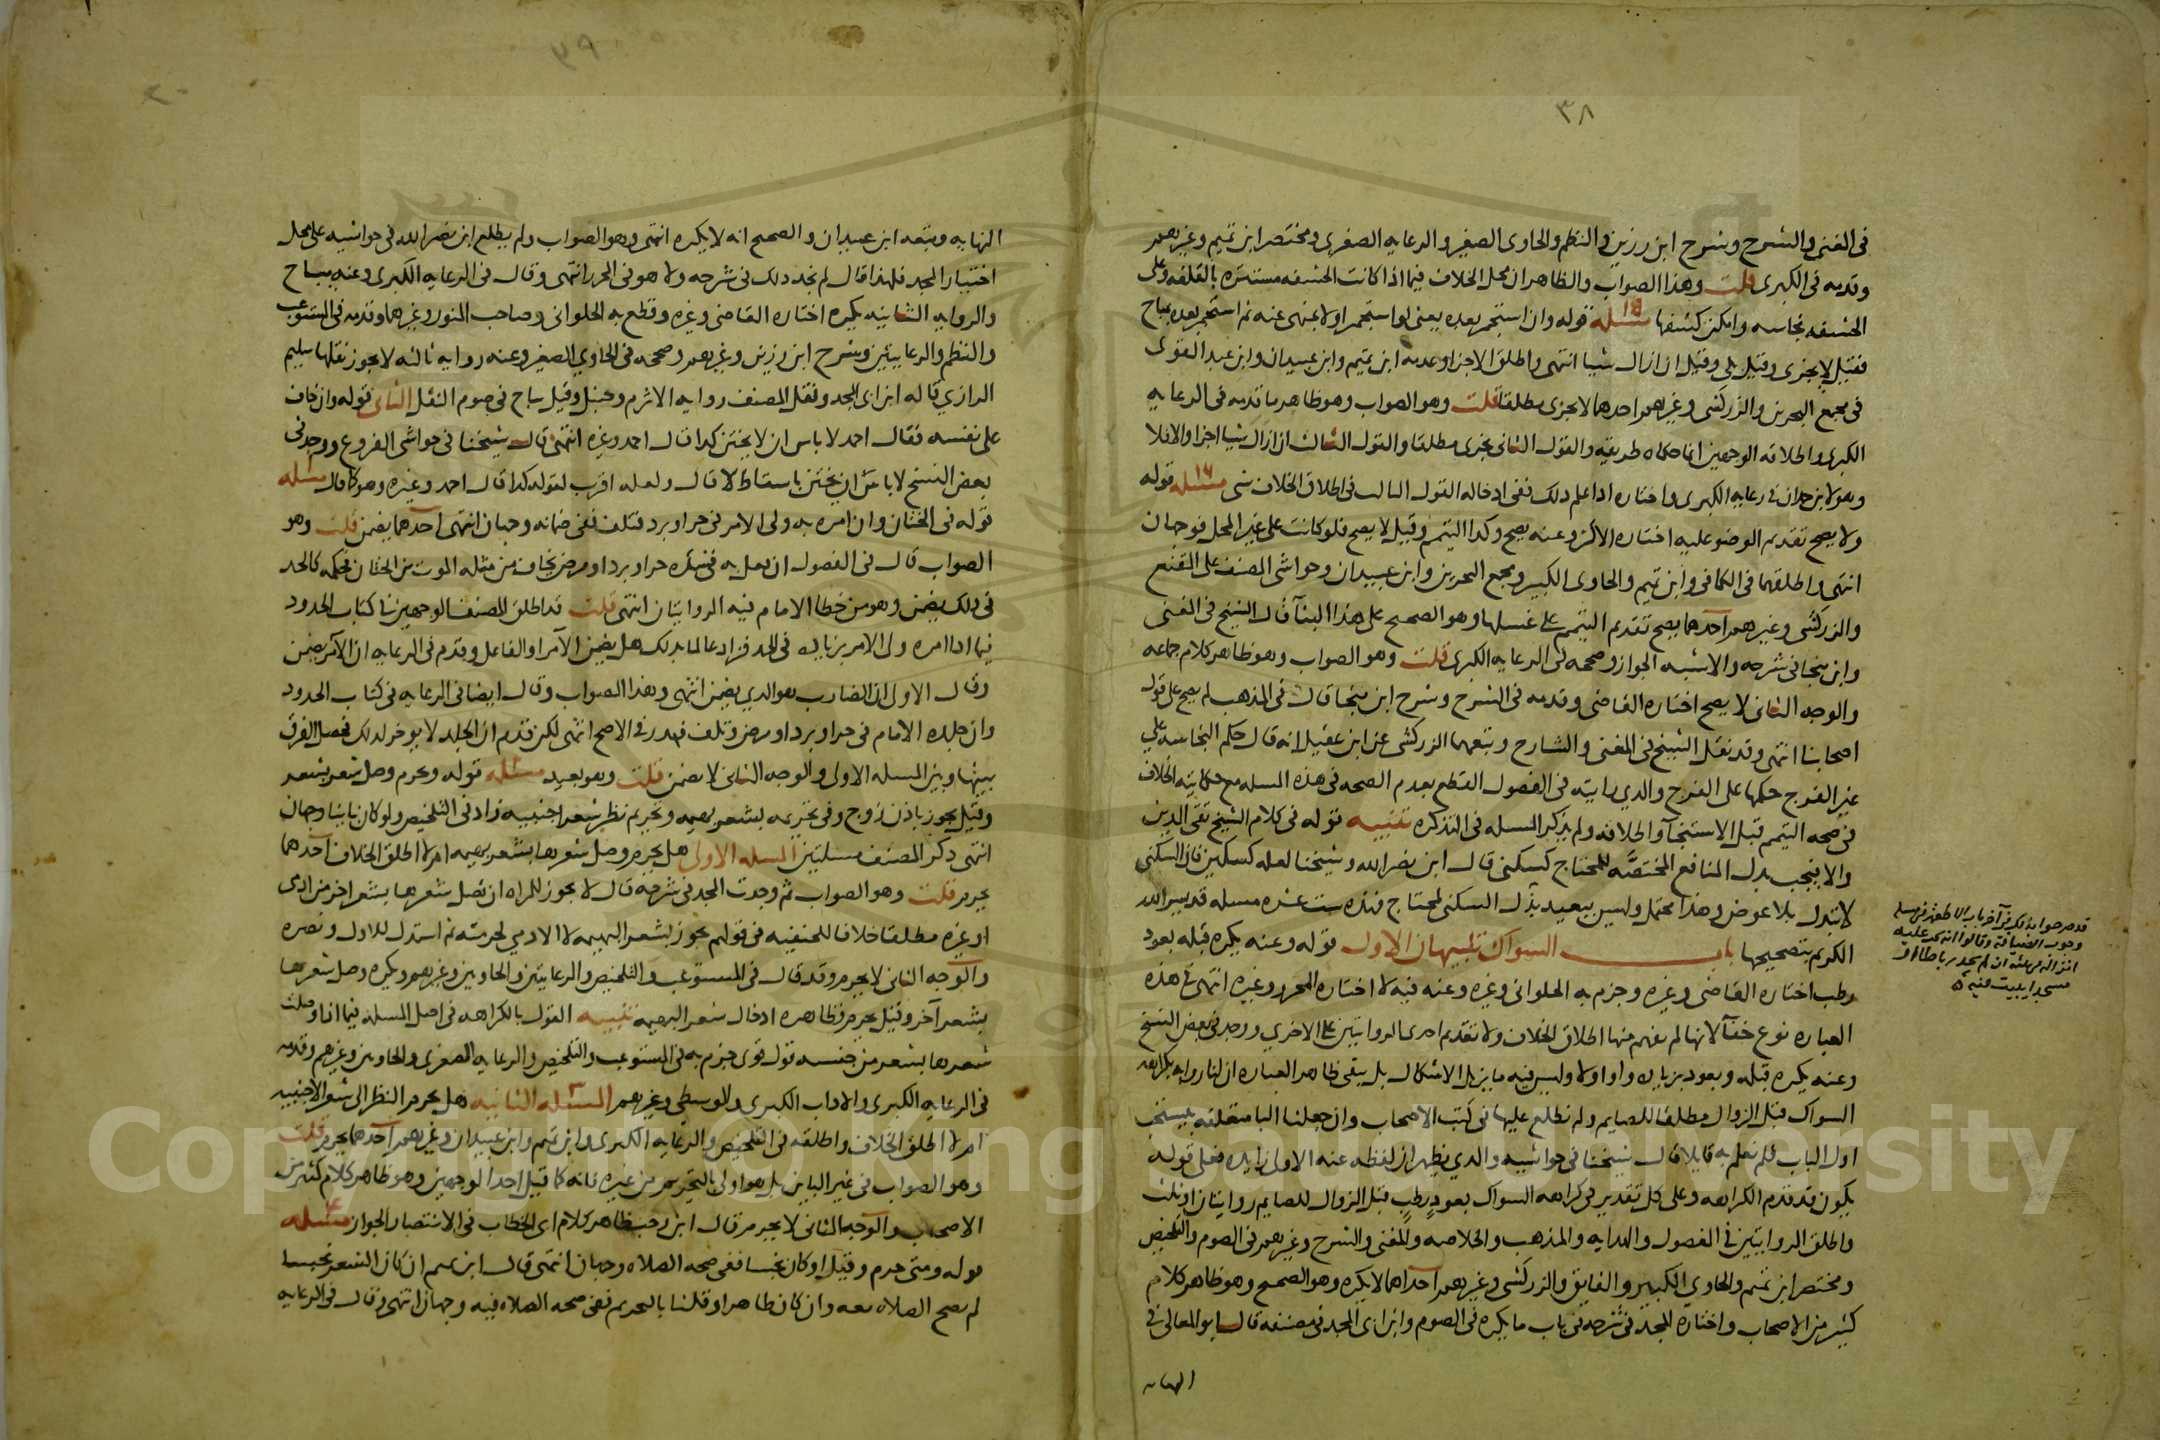 ٣٨
فى المغنى والشرح وشرح ابن رزين والنظم والحاوى الصغير والرعايه الصغرى ومختصر ابن تميم وغيرهم
وقدمه فى الكبرى قلت وهذا الصواب والظاهر ان محل الخلاف فيما اذا كانت الحشفه مستتره بالقلفه وعلى
الحشفه نجاسه وامكن كشفها مسئله ١٥ قوله وان استجمر بعده يعنى لو استجمر اولا بمنهى عنه ثم استجمر بعده بمباح
فقيل لا يجزى وقيل بلى وقيل ان ازال شيا انتهى واطلق الاجزا وعدمه ابن تميم وابن عبيدان وابن عبد القوى
فى مجمع البحرين والزركشى وغيرهم احدهما لا يجزى مطلقا قلت وهو الصواب وهو ظاهر ما قدمه فى الرعايه
الكبرى واطلاقه الوجهين انما حكاه طريقه والقول الثانى يجزى مطلقا والقول الثالث ان ازال شيا اجزا والا فلا
وهو لابن حمدان فى رعايه الكبرى واختاره اذا علم ذلك ففى ادخاله القول الثالث فى اطلاق الخلاف شى مسئله ١٦ قوله
ولا يصح تقديم الوضو عليه اختاره الاكثر وعنه يصح وكذا التيمم وقيل لا يصح فلو كانت على غير المحل فوجهان
انتهى واطلقهما فى الكافى وابن تميم والحاوى الكبير ومجمع البحرين وابن عبيدان وحواشى المصنف على المقنع
والزركشى وغيرهم احدهما يصح تقديم التيمم على غسلها وهو الصحيح على هذا البنآ قال الشيخ فى المغنى
وابن منجا فى شرحه والاشبه الجواز وصححه فى الرعايه الكبرى قلت وهو الصواب وهو ظاهر كلام جماعه
والوجه الثانى لا يصح اختاره القاضى وقدمه فى الشرح وشرح ابن منجا قال فى المذهب لم يصح على قول
اصحابنا انتهى وقد نقل الشيخ فى المغنى والشارح وتبعهما الزركشى عن ابن عقيل انه قال حكم النجاسه على
غير الفرج حكمها على الفرج والذى رايته فى الفصول القطع بعدم الصحه فى هذه المسله مع حكايته الخلاف
فى صحه التيمم قبل الاستنجآ واطلاقه ولم يذكر المسله فى التذكره تنبيه قوله فى كلام الشيخ تقى الدين
والا فيجب بذل المنافع المختصّه للمحتاج كسكنى قال ابن نصر الله وشيخنا لعله كسكين فان السكنى
لا تبذل بلا عوض وهذا محتمل وليس ببعيد بذل السكنى لمحتاج فهذه ست عشره مسله قد يسر الله
الكريم بتصحيحها باب السواك تنبيهان الاول قوله وعنه يكره قبله بعود
رطب اختاره القاضى وغيره وجزم به الحلوانى وغيره وعنه فيه لا اختاره المجد وغيره انتهى فى هذه
العباره نوع خفآ لانها لم يفهم منها اطلاق الخلاف ولا تقديم احدى الروايتين على الاخرى ووجد فى بعض النسخ
وعنه يكره قبله وبعود بزياده واو اولا وليس فيه ما يزيل الاشكال بل يبقى ظاهر العباره ان لنا روايه بكراهه
السواك قبل الزوال مطلقا للصايم ولم نطلع عليها فى كتب الاصحاب وان جعلنا البا متعلقه بيستحب
اول الباب فلم نعلم به قايلا قال شيخنا فى حواشيه والذى يظهر ان لفظه عنه الاولى زايده فعلى قوله
يكون قد قدم الكراهه وعلى كل تقدير فى كراهه السواك بعود رطب قبل الزوال للصايم روايتان
واطلق الروايتين فى الفصول والهدايه والمذهب والخلاصه والمغنى والشرح وغيرهم فى الصوم والتلخيص
ومختصر ابن تميم والحاوي الكبير والفايق والزركشى وغيرهم احداهما لا يكره وهو الصحيح وهو ظاهر كلام
كثير من الاصحاب واختاره المجد فى شرحه فى باب ما يكره فى الصوم وابن ابى المجد فى مصنفه قال ابو المعالى فى
النهايه
قد مر صوابه
وجوب الضيافة وقالوا انه يجب عليه
انزاله فى بيته ان لم يجد رباطا او
مسجدا يبيت فيه
٣٩
النهايه وتبعه ابن عبيدان والصحيح انه لا يكره انتهى وهو الصواب ولم يطلع ابن نصر الله فى حواشيه على محل
اختيار المجد فلهذا قال لم نجد ذلك فى شرحه ولا هو فى المحرر انتهى وقال فى الرعايه الكبرى وعنه يباح
والروايه الثانيه يكره اختاره القاضى وغيره وقطع به الحلوانى وصاحب المنور وغيرهما وقدمه فى المستوعب
والنظم والرعايتين وشرح ابن رزين وغيرهم وصححه فى الحاوي الصغير وعنه روايه ثالثه لا يجوز نقلها سليم
الرازى قاله ابن ابى المجد ونقل المصنف روايه الاثرم وحنبل وقيل يباح فى صوم النفل الثانى قوله وان خاف
على نفسه فقال احمد لا باس ان لا يختتن كذا قال احمد وغيره انتهى قال شيخنا فى حواشى الفروع ووجد فى
بعض النسخ لا باس ان يختتن باسقاط لا قال ولعله اقرب لقوله كذا قال احمد وغيره وهو كما قال مسئله
قوله فى الختان وان امره به ولى الامر فى حر او برد فتلف ففى ضمانه وجهان انتهى احدهما يضمن قلت وهو
الصواب قال فى الفصول ان فعل به فى شده حر او برد او مرض يخاف من مثله الموت من الختان فحكمه كالحد
فى ذلك يضمن وهو من خطا الامام فيه الروايتان انتهى قلت قد اطلق المصنف الوجهين فى كتاب الحدود
فيما اذا امره ولى الامر بزياده فى الحد فزاد عالما بذلك هل يضمن الآمر او الفاعل وقدم فى الرعايه ان الآمر يضمن
وقال الاول ان الضارب هو الذي يضمن انتهى وهذا الصواب وقال ايضا فى الرعايه فى كتاب الحدود
وان جلده الامام فى حر او برد او مرض وتلف فهدر فى الاصح انتهى لكن قدم ان الجلد لا يوخر لذلك فحصل الفرق
بينها وبين المسله الاولى والوجه الثانى لا يضمن قلت وهو بعيد مسئله قوله ويحرم وصل شعر بشعر
وقيل يجوز باذن زوج وفى تحريمه بشعر بهيمه وتحريم نظر شعر اجنبيه زاد فى التلخيص ولو كان باينا وجهان
انتهى ذكر المصنف مسلتين المسله الاولى هل يحرم وصل شعرها بشعر بهيمه ام لا اطلق الخلاف احدهما
يحرم قلت وهو الصواب ثم وجدت المجد فى شرحه قال لا يجوز للمراه ان تصل شعرها بشعر اخر من ادمى
او غيره مطلقا خلافا للحنفيه فى قولهم يجوز بشعر البهيمه لا الادمي لحرمته ثم استدل للاول ونصره
والوجه الثانى لا يحرم وقد قال فى المستوعب والتلخيص والرعايتين والحاويين وغيرهم ويكره وصل شعرها
بشعر آخر وقيل يحرم فظاهره ادخال شعر البهيمه تنبيه القول بالكراهه فى اصل المسله فيما اذا وصلت
شعرها بشعر من جنسه قول قوى جزم به فى المستوعب والتلخيص والرعايه الصغرى والحاويين وغيرهم وقدمه
فى الرعايه الكبرى والاداب الكبرى والوسطى وغيرهم المسئله الثانيه هل يحرم النظر الى شعر الاجنبيه
ام لا اطلق الخلاف واطلقه فى التلخيص والرعايه الكبرى وابن تميم وابن عبيدان وغيرهم احدهما يحرم قلت
وهو الصواب فى غير الباين بل هو اولى بالتحريم من غيره فانه كما قيل احد الوجهين وهو ظاهر كلام كثير من
الاصحاب والوجه الثانى لا يحرم قال ابن رجب ظاهر كلام ابى الخطاب فى الانتصار الجواز مسئله
قوله ومتى حرم وقيل او كان نجسا ففى صحه الصلاه وجهان انتهى قال ابن تميم ان كان الشعر نجسا
لم تصح الصلاه معه وان كان طاهرا وقلنا بالتحريم ففى صحه الصلاه فيه وجهان انتهى وقال فى الرعايه
Copyright © King Saud University